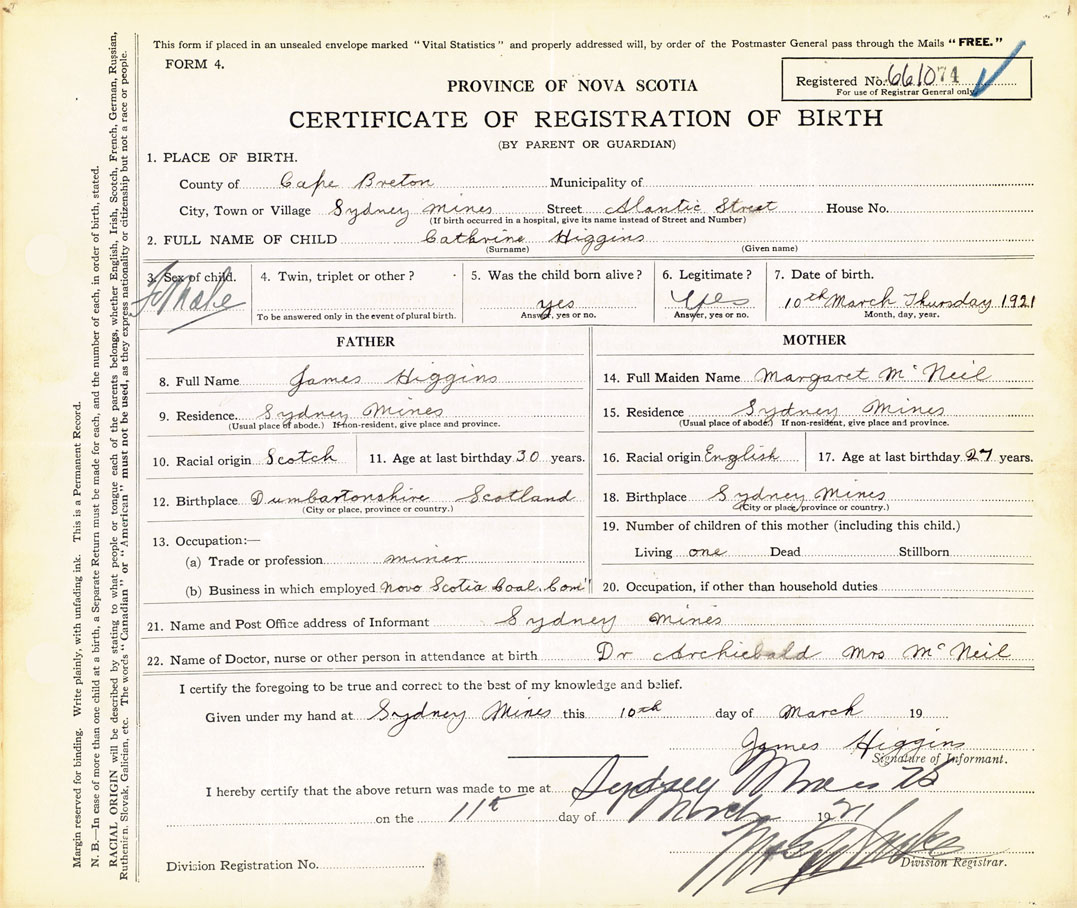 This form if placed in an unsealed envelope marked "Vital Statistics" and properly addressed will, by order of the Postmaster General pass through the Mails "FREE."
FORM 4.
Registered No. 661074
For use of Registrar General only
PROVINCE OF NOVA SCOTIA
CERTIFICATE OF REGISTRATION OF BIRTH
(BY PARENT OR GUARDIAN)
1. PLACE OF BIRTH.
County of Cape Breton Municipality of
City, Town or Village Sydney Mines Street Alantic Street House No.
(If birth occurred in a hospital, give its name instead of Street and Number)
2. FULL NAME OF CHILD Cathrine Higgins
(Surname) (Given name)
3. Sex of child. 4. Twin, triplet or other? 5. Was the child born alive? 6. Legitimate? 7. Date of birth.
female yes Yes 10th March Thursday 1921
To be answered only in the event of plural birth. Answer, yes or no. Answer, yes or no. Month, day, year.
FATHER
8. Full Name James Higgins
9. Residence. Sydney Mines
(Usual place of abode.) If non-resident, give place and province.
10. Racial origin Scotch 11. Age at last birthday 30 years.
12. Birthplace Dumbartonshire Scotland
(City or place, province or country.)
13. Occupation:—
(a) Trade or profession miner
(b) Business in which employed Novo Scotia Coal. Com"
MOTHER
14. Full Maiden Name Margaret McNeil
15. Residence Sydney Mines
(Usual place of abode.) If non-resident, give place and province.
16. Racial origin English 17. Age at last birthday 27 years.
18. Birthplace Sydney Mines
(City or place, province or country.)
19. Number of children of this mother (including this child.)
Living one Dead Stillborn
20. Occupation, if other than household duties
21. Name and Post Office address of Informant Sydney Mines
22. Name of Doctor, nurse or other person in attendance at birth Dr Archiebald Mrs McNeil
I certify the foregoing to be true and correct to the best of my knowledge and belief.
Given under my hand at Sydney Mines this 10th day of March 19
James Higgins
Signature of Informant.
I hereby certify that the above return was made to me at Sydney Mines
on the 11th day of March 1921
Division Registrar.
Division Registration No.
Margin reserved for binding. Write plainly, with unfading ink. This is a Permanent Record.
N. B.—In case of more than one child at a birth, a Separate Return must be made for each, and the number of each, in order of birth, stated.
RACIAL ORIGIN will be described by stating to what people or tongue each of the parents belongs, whether English, Irish, Scotch, French, German, Russian,
Ruthenian, Slovak, Galician, etc. The words "Canadian" or "American" must not be used, as they express nationality or citizenship but not a race or people.